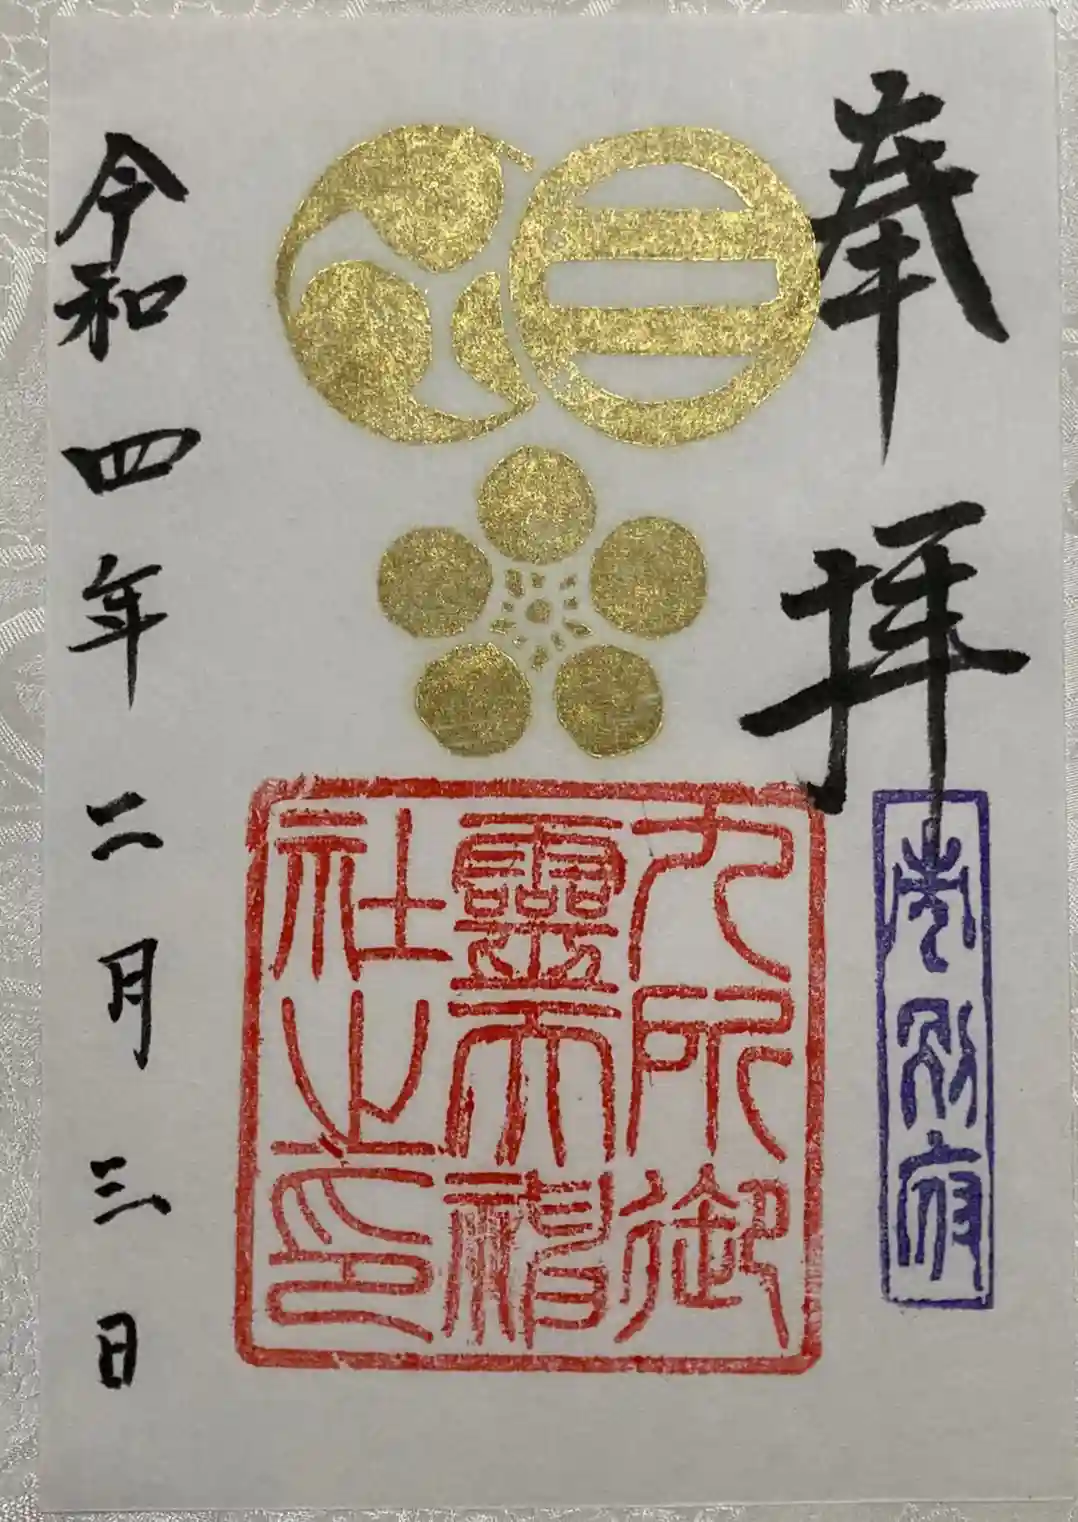 奉拝
九所御
靈天神
社之印
令和四年二月三日